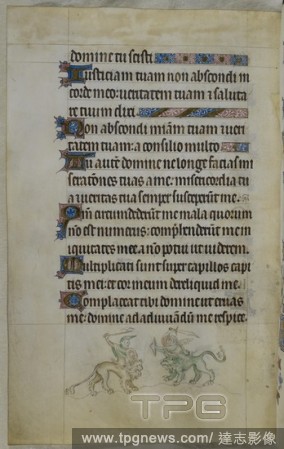 domine tu scisti
Iusticiam tuam non abscondi in
corde meo: ueritatem tuam ⁊ saluta
re tuum dixi.
Non abscondi miam tuam ⁊ ueri
tatem tuam: a consilio multo
Tu aut domine ne longe facias mi
seratōnes tuas a me: misericordia tu
a ⁊ ueritas tua semper susceperūt me.
circumdederūt me mala quorum
nō est numerus: comprehenderūt me in
iquitates mee ⁊ nō potui ut uiderem.
Multiplicati sunt super capillos capi
tis mei: et cor meum dereliquid me.
Complaceat tibi domine ut eruas
me: domine ad adiuuādū me respice.
TPG
www.tpgnews.com/達志影像